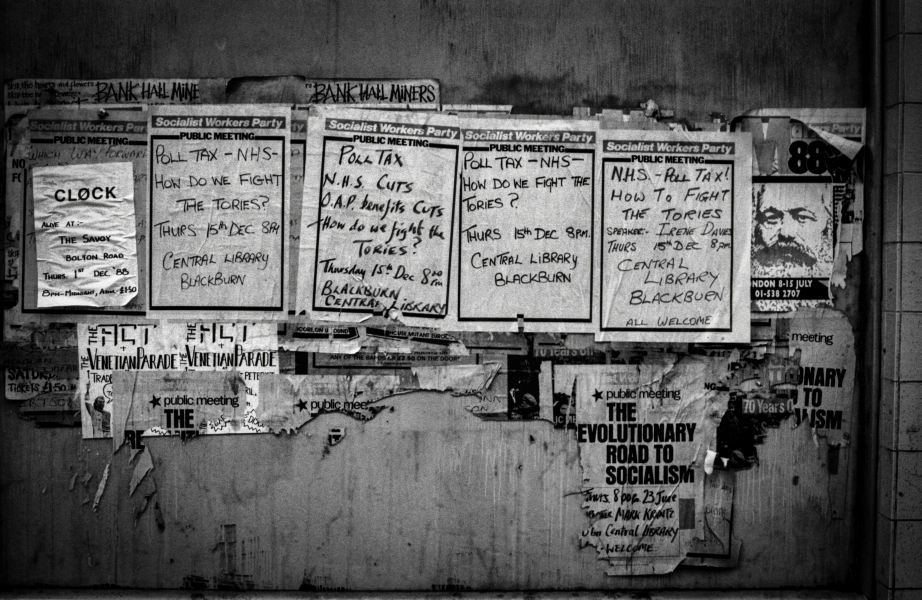 BANK HALL MINE
BANK HALL MINERS
Socialist Workers Party
PUBLIC MEETING
WHICH WAY FORWARD
CLØCK
ALIVE AT :-
THE SAVOY
BOLTON ROAD
THURS 1ST DEC '88
8PM-MIDNIGHT, ADM. £1.50
Socialist Workers Party
PUBLIC MEETING
POLL TAX - NHS -
HOW DO WE FIGHT
THE TORIES?
THURS 15th DEC 8PM
CENTRAL LIBRARY
BLACKBURN
Socialist Workers Party
PUBLIC MEETING
POLL TAX
N.H.S. CUTS
O.A.P. benefits CUTS
How do we fight the
TORIES?
Thursday 15th Dec 8
BLACKBURN
CENTRAL LIBRARY
Socialist Workers Party
PUBLIC MEETING
POLL TAX - NHS -
HOW DO WE FIGHT THE
TORIES?
THURS 15th DEC 8PM.
CENTRAL LIBRARY
BLACKBURN
Socialist Workers Party
PUBLIC MEETING
N.H.S. - POLL TAX!
HOW TO FIGHT
THE TORIES
SPEAKER:- IRENE DAVIES
THURS 15th DEC 8pm.
CENTRAL
LIBRARY
BLACKBURN
ALL WELCOME
Party
88
NDON 8-15 JULY
01-538 2707
THE ACT
+
VENETIAN PARADE
THE ACT
+
VENETIAN PARADE
SATUR
TICKETS £1.50
ANY OF THE BANDS OR £2.50 ON THE DOOR
70 Years On
public meeting
THE
RE
public meet
public meeting
THE
EVOLUTIONARY
ROAD TO
SOCIALISM
Thurs. 8pm 23 June
MARK KRANTZ
Central LIBRARY
WELCOME
meeting
ONARY
TO
ISM
70 Years O